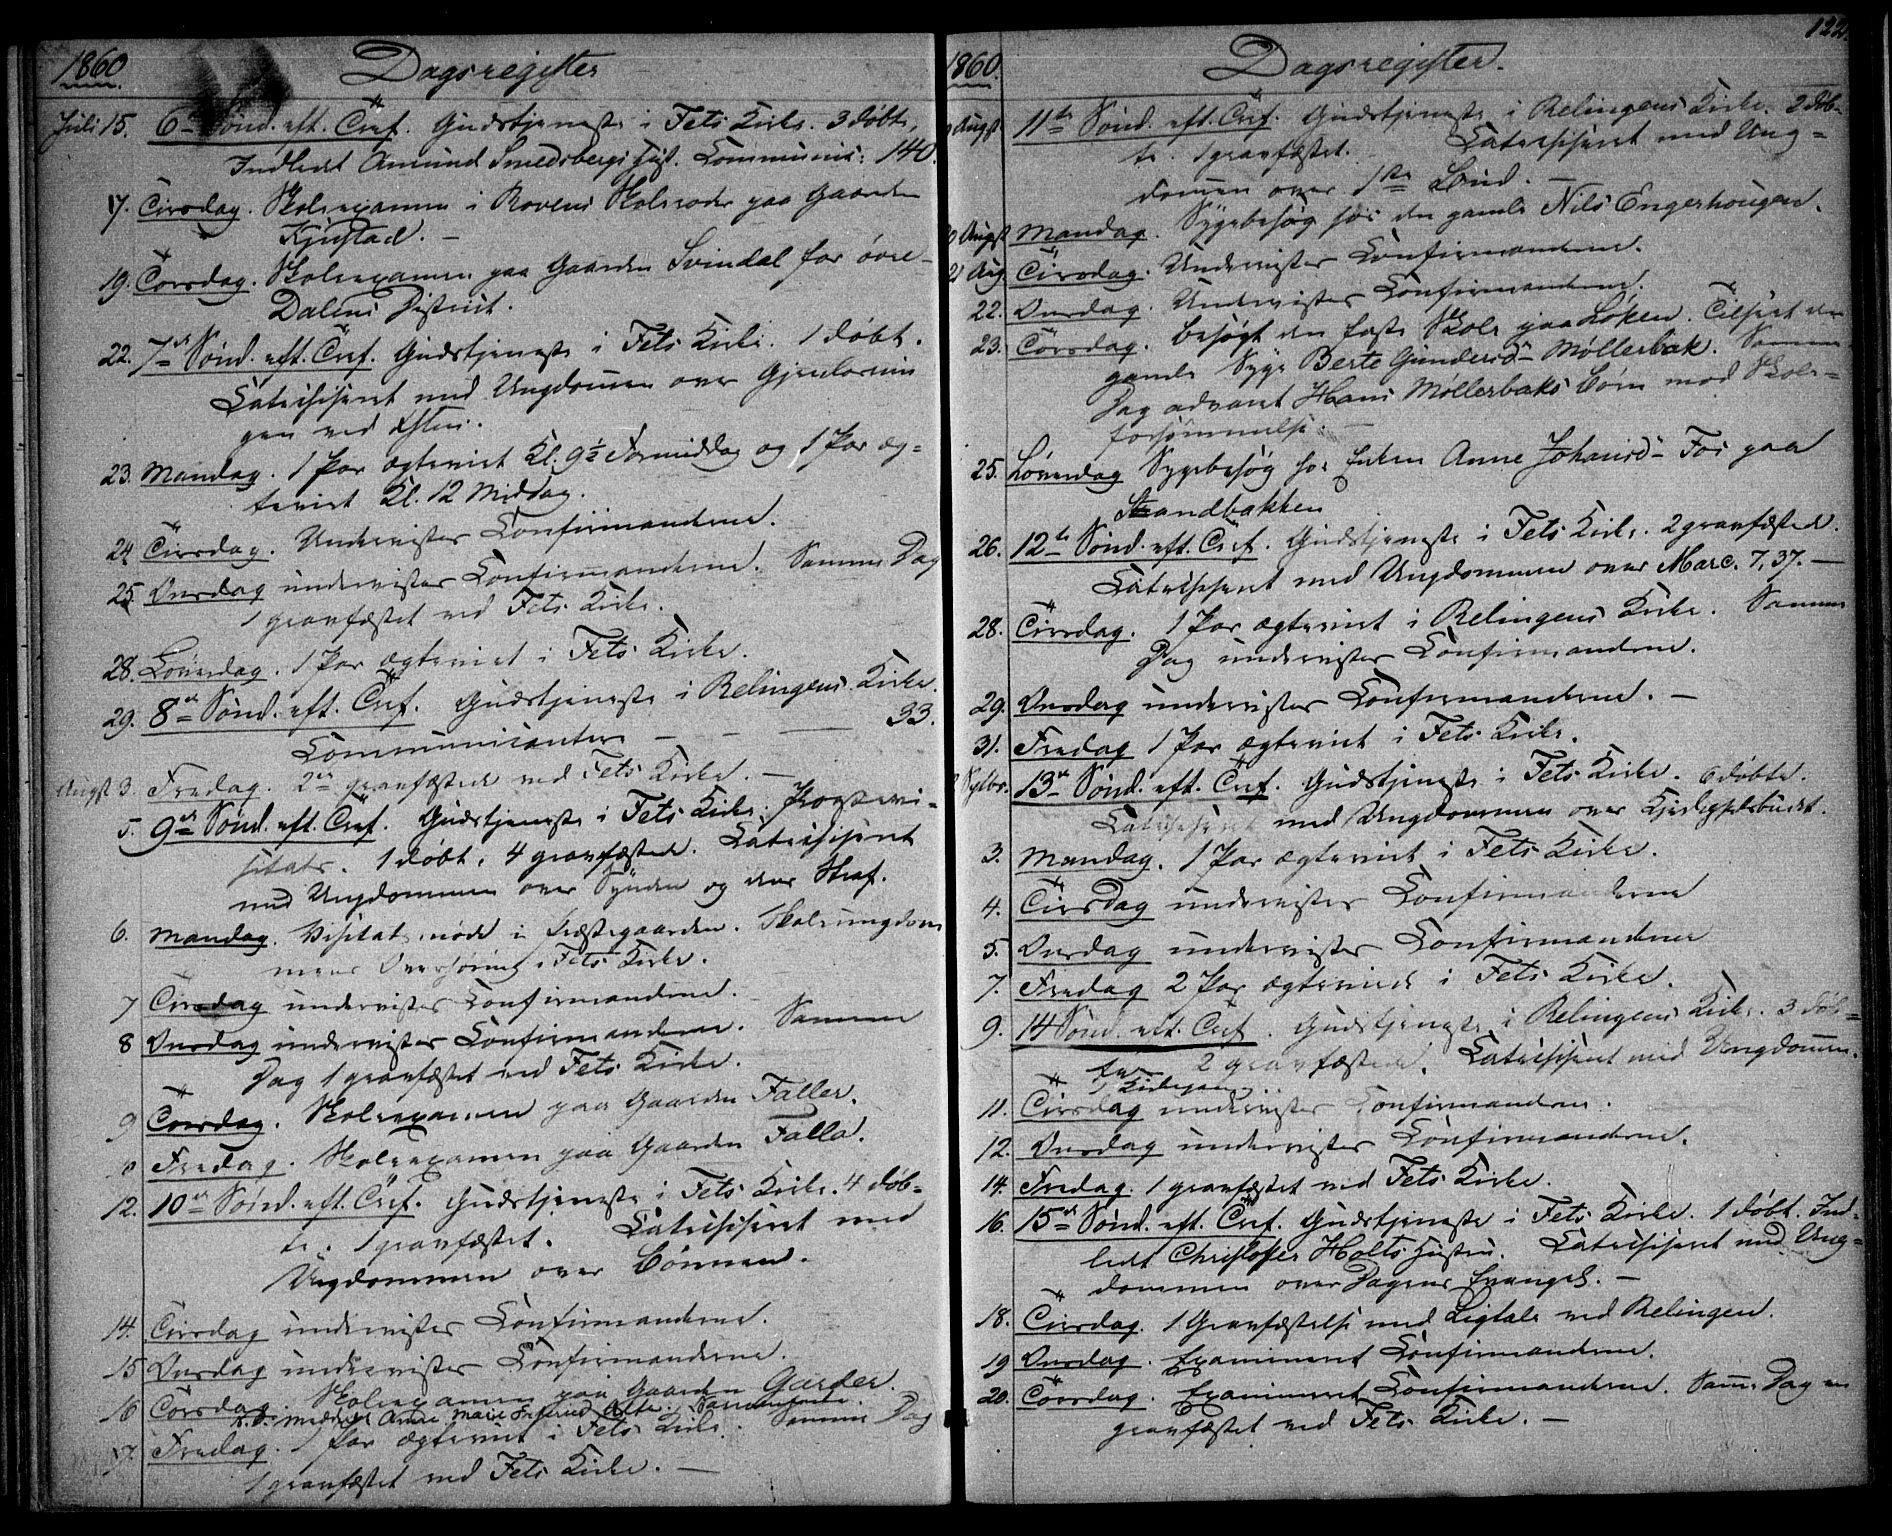 1860 Dagsregister
Juli 15. 6te Sønd. eft. Tref. Gudstjeneste i Fets Kirke. 3 døbte,
Indledet Amund Smedsbergs Hust. Communic: 140.
17. Tirsdag. Skoleexamen i Rovens Skolerode paa Gaarden
Kjustad. —
19. Torsdag. Skoleexamen paa Gaarden Svindal for øvre
Dalens District.
22. 7de Sønd. eft. Tref. Gudstjeneste i Fets Kirke. 1 døbt.
Catechiseret med Ungdommen over Gjenløsnin
gen ved Chr.
23. Mandag. 1 Par ægteviet Kl. 9½ Formiddag og 1 Par æg-
teviet Kl. 12 Middag.
24. Tirsdag. Underviste Confirmanderne.
25. Onsdag underviste Confirmanderne. Samme Dag
1 gravfæstet ved Fets Kirke.
28. Løverdag. 1 Par ægteviet i Fets Kirke.
29. 8de Sønd. eft. Tref. Gudstjeneste i Relingens Kirke.
Communicanter — — — 33.
Augst 3. Fredag. 2de gravfæstede ved Fets Kirke. —
5. 9de Sønd. eft. Tref. Gudstjeneste i Fets Kirke. Provstevi-
sitats. 1 døbt. 4 gravfæstede. Catechiseret
med Ungdommen over Synden og dens Straf.
6. Mandag. Visitatsmøde i Præstegaarden. Skoleungdom
mens Overhøring i Fets Kirke.
7 Tirsdag underviste Confirmanderne.
8 Onsdag underviste Confirmanderne. Samme
Dag 1 gravfæstet ved Fets Kirke.
9 Torsdag. Skoleexamen paa Gaarden Faller.
Fredag. Skoleexamen paa Gaarden Falla.
12. 10de Sønd. eft. Tref. Gudstjeneste i Fets Kirke. 4 døb-
te. 1 gravfæstet. Catechiseret med
Ungdommen over Bønnen.
14. Tirsdag underviste Confirmanderne.
15 Onsdag underviste Confirmanderne.
16 Torsdag. Skoleexamen paa Gaarden Garder.
Anne Marie
17. Fredag. 1 Par ægteviet i Fets Kirke. Samme Dag
1 gravfæstet ved Fets Kirke. —
122.
1860. Dagsregister.
Augst 11te Sønd. eft. Tref. Gudstjeneste i Relingens Kirke. 2 døb-
te. 1 gravfæstet. Catechiseret med Ung-
dommen over 1ste Bud. —
Augst Mandag. Sygebesøg hos den gamle Nils Engerhougen.
21 Aug. Tirsdag. Underviste Confirmanderne.
22. Onsdag. Underviste Confirmanderne.
23. Torsdag. Besøgt den faste Skole paa Løken. Tilseet den
gamle Syge Berte Gundersd. Møllerbak. Samme
Dag advaret Hans Møllerbaks Børn mod Skole-
forsømmelse. —
25. Løverdag Sygebesøg hos Enken Anne Johansd. Fos paa
Strandbakken
26. 12te Sønd. eft. Tref. Gudstjeneste i Fets Kirke. 2 gravfæstede.
Catechiseret med Ungdommen over Marc. 7, 37. —
28. Tirsdag. 1 Par ægteviet i Relingens Kirke. Samme
Dag underviste Confirmanderne.
29. Onsdag underviste Confirmanderne. —
31. Fredag 1 Par ægteviet i Fets Kirke.
Sptbr. 13de Sønd. eft. Tref. Gudstjeneste i Fets Kirke. 6 døbte.
Catechiseret med Ungdommen over Kjerlighedsbudet.
3. Mandag. 1 Par ægteviet i Fets Kirke.
4. Tirsdag underviste Confirmanderne
5. Onsdag underviste Confirmanderne
7. Fredag 2 Par ægteviede i Fets Kirke.
9. 14 Sønd. eft. Tref. Gudstjeneste i Relingens Kirke. 3 døb-
te 2 gravfæstede. Catechiseret med Ungdommen.
1 Kirkegang
11. Tirsdag underviste Confirmanderne.
12. Onsdag underviste Confirmanderne.
14. Fredag. 1 gravfæstet ved Fets Kirke.
16. 15de Sønd. eft. Tref. Gudstjeneste i Fets Kirke. 1 døbt. Ind-
ledt Christoffer Holts Hustru. Catechiseret med Ung-
dommen over Dagens Evangel. —
18. Tirsdag. 1 Gravfæstelse med Ligtale ved Relingen.
19 Onsdag. Examineret Confirmanderne.
20. Torsdag. Examineret Confirmanderne. Samme Dag en
gravfæstet ved Fets Kirke. —